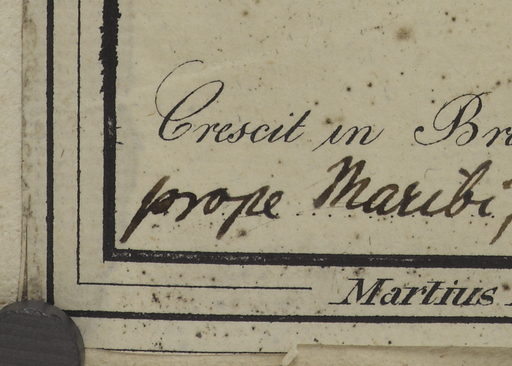 Crescit in Br
prope Maribi,
Martius